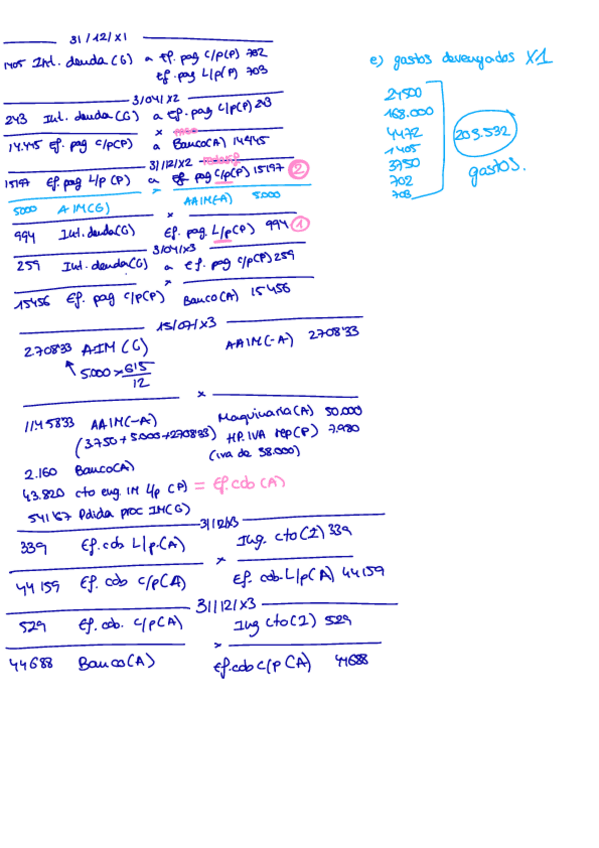 31/12/X1
1405 Int. deuda (G) a Ef. pag c/p(P) 702
Ef. pag L/p(P) 703
3/04/X2
243 Int. deuda (G) a Ef. pag c/p(P) 243
x
14.445 Ef. pag c/p(P) a Banco(A) 14445
31/12/X2
15197 Ef. pag L/p (P) a Ef pag c/p(P) 15197 (2)
5000 AIM(G) AAIM(-A) 5.000
x
994 Int. deuda(G) Ef. pag. L/p(P) 994 (1)
3/04/X3
259 Int. deuda(G) a Ef. pag c/p(P) 259
x
15456 Ef. pag c/p(P) Banco(A) 15456
15/07/X3
2.708'33 AIM (G) AAIM(-A) 2708'33
5.000 x 6'5
12
x
11458'33 AAIM(-A) Maquinaria(A) 50.000
(3.750+5.000+2708'33) HP. IVA rep(P) 7.980
(iva de 38.000)
2.160 Banco(A)
43.820 cto eng. IM L/p (A) = Ef. cob (A)
541'67 Pdida proc IM(G)
31/12/X3
339 Ef. cob L/p.(A) Ing. cto(I) 339
x
44159 Ef. cob c/p(A) Ef. cob. L/p(A) 44159
31/12/X3
529 Ef. cob. c/p(A) Ing cto(I) 529
x
44688 Banco(A) Ef. cob c/p (A) 44688
e) gastos devengados X1
24500
168.000
4472
1405
3750
702
703
203.532
gastos.